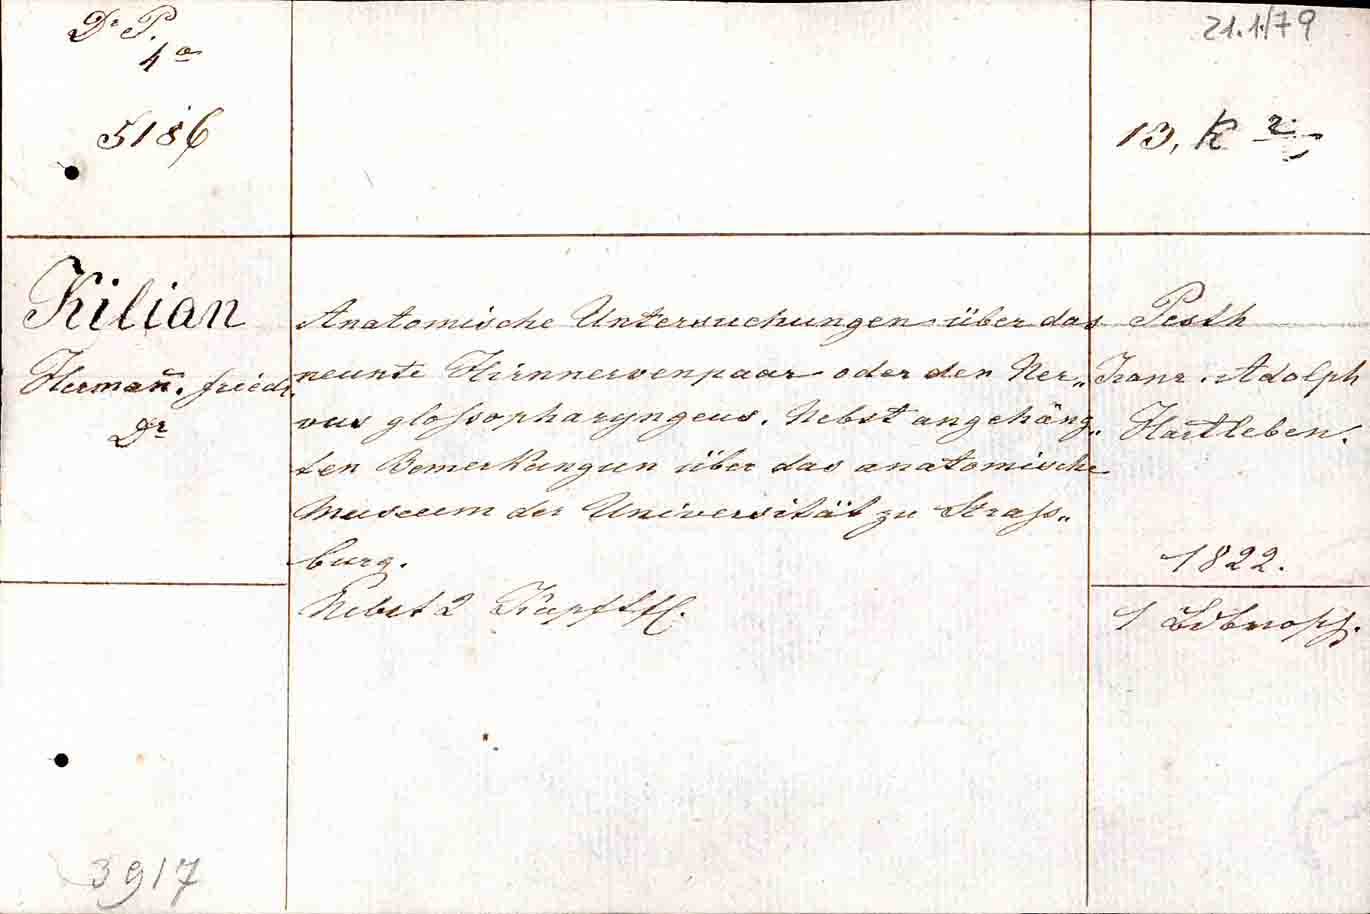 Dr P.
4o
5186
21.1.79
13, K 2
Kilian
Herman̄. Friedr.
Dr
Anatomische Untersuchungen über das
neunte Hirnnervenpaar oder den Ner„
vus glossopharyngeus. Nebst angehäng„
ten Bemerkungun über das anatomische
Museum der Universität zu Strass„
burg.
Nebst 2 Kupfttfl.
Pesth
Konr. Adolph
Hartleben.
1822.
1
3917